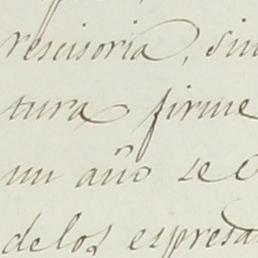 rescisoria, sin
tura firme
un año se
de los espresa